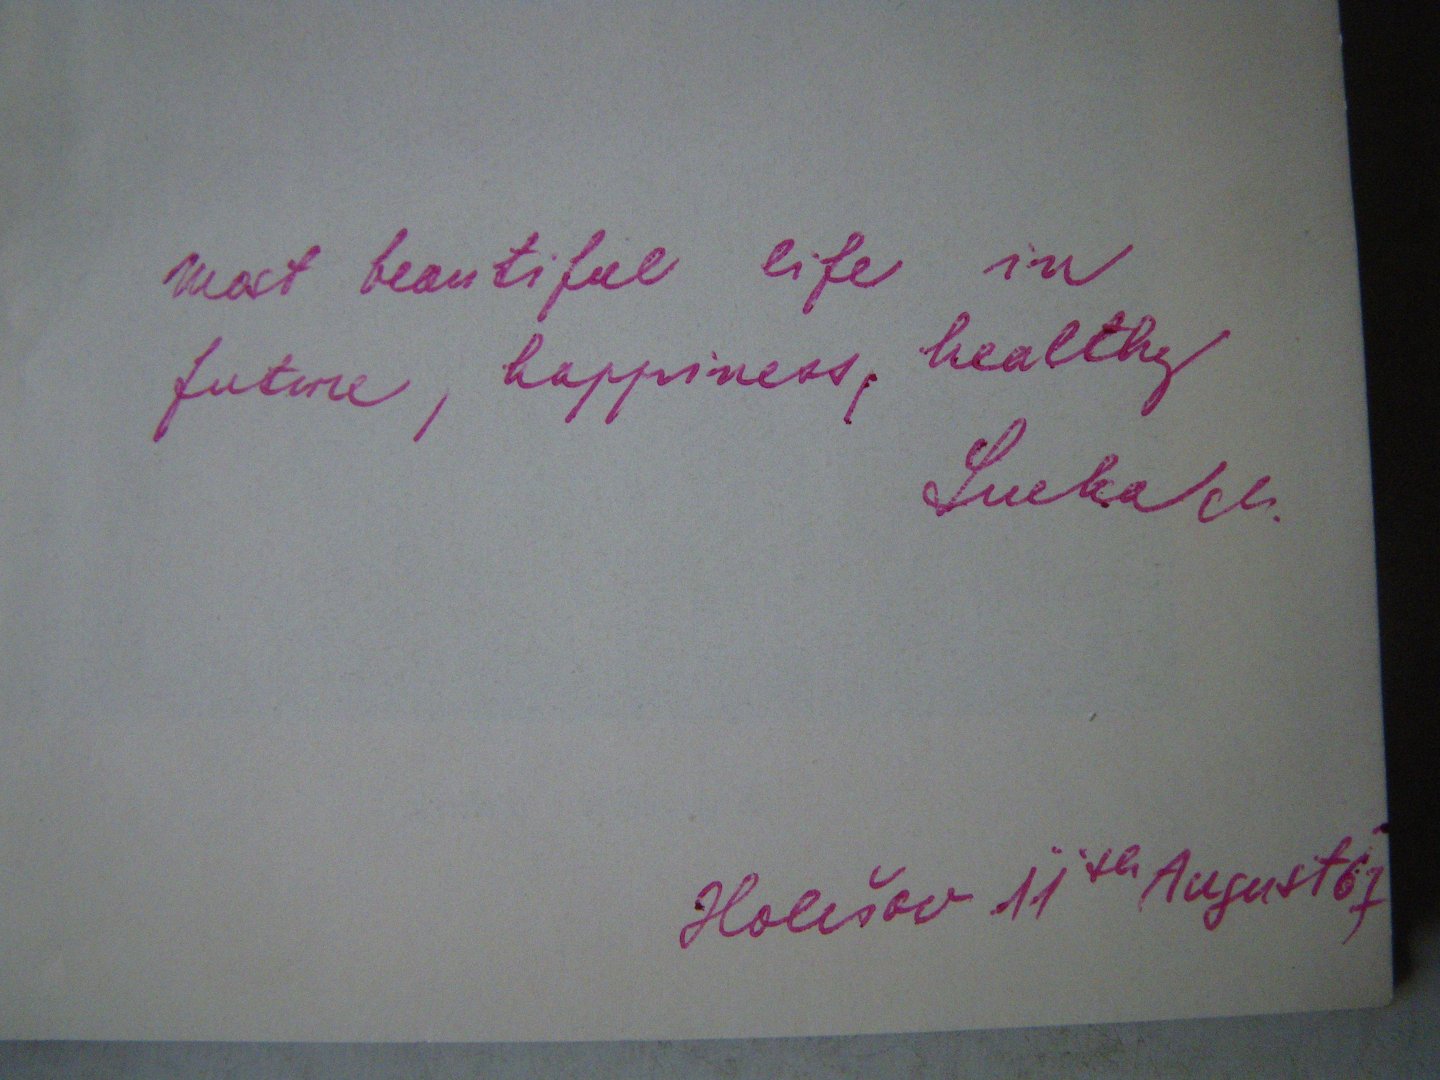 most beautiful life in
future, happiness, healthy
Holešov 11th August 67